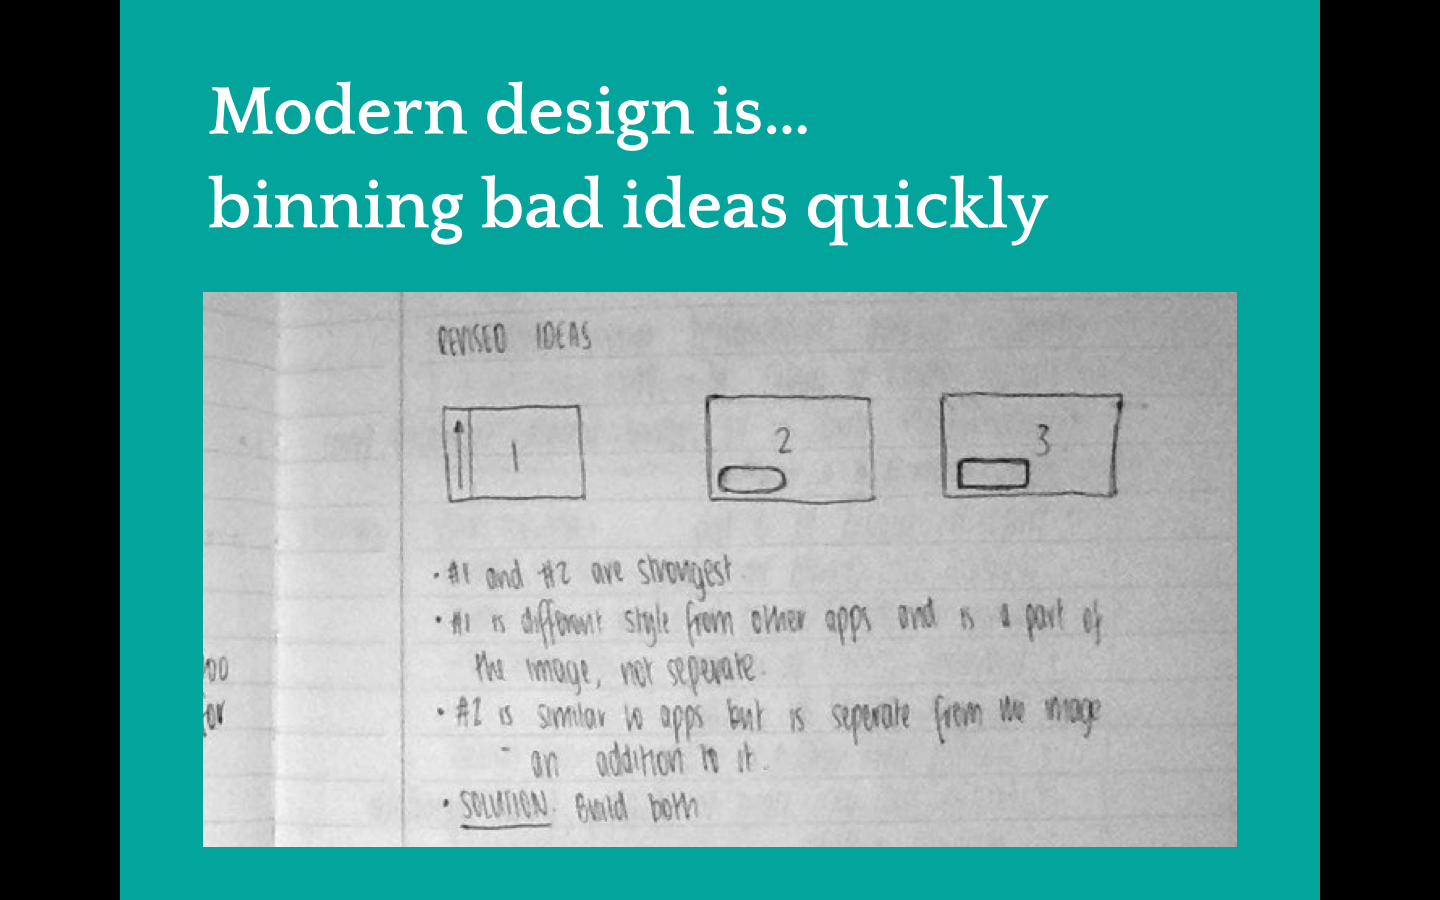 Modern design is...
binning bad ideas quickly
REVISED IDEAS
1
2
3
• #1 and #2 are strongest.
• #1 is different style from other apps and is a part of
the image, not seperate.
• #2 is similar to apps but is seperate from the image
- an addition to it.
• SOLUTION. Build both
oo
for